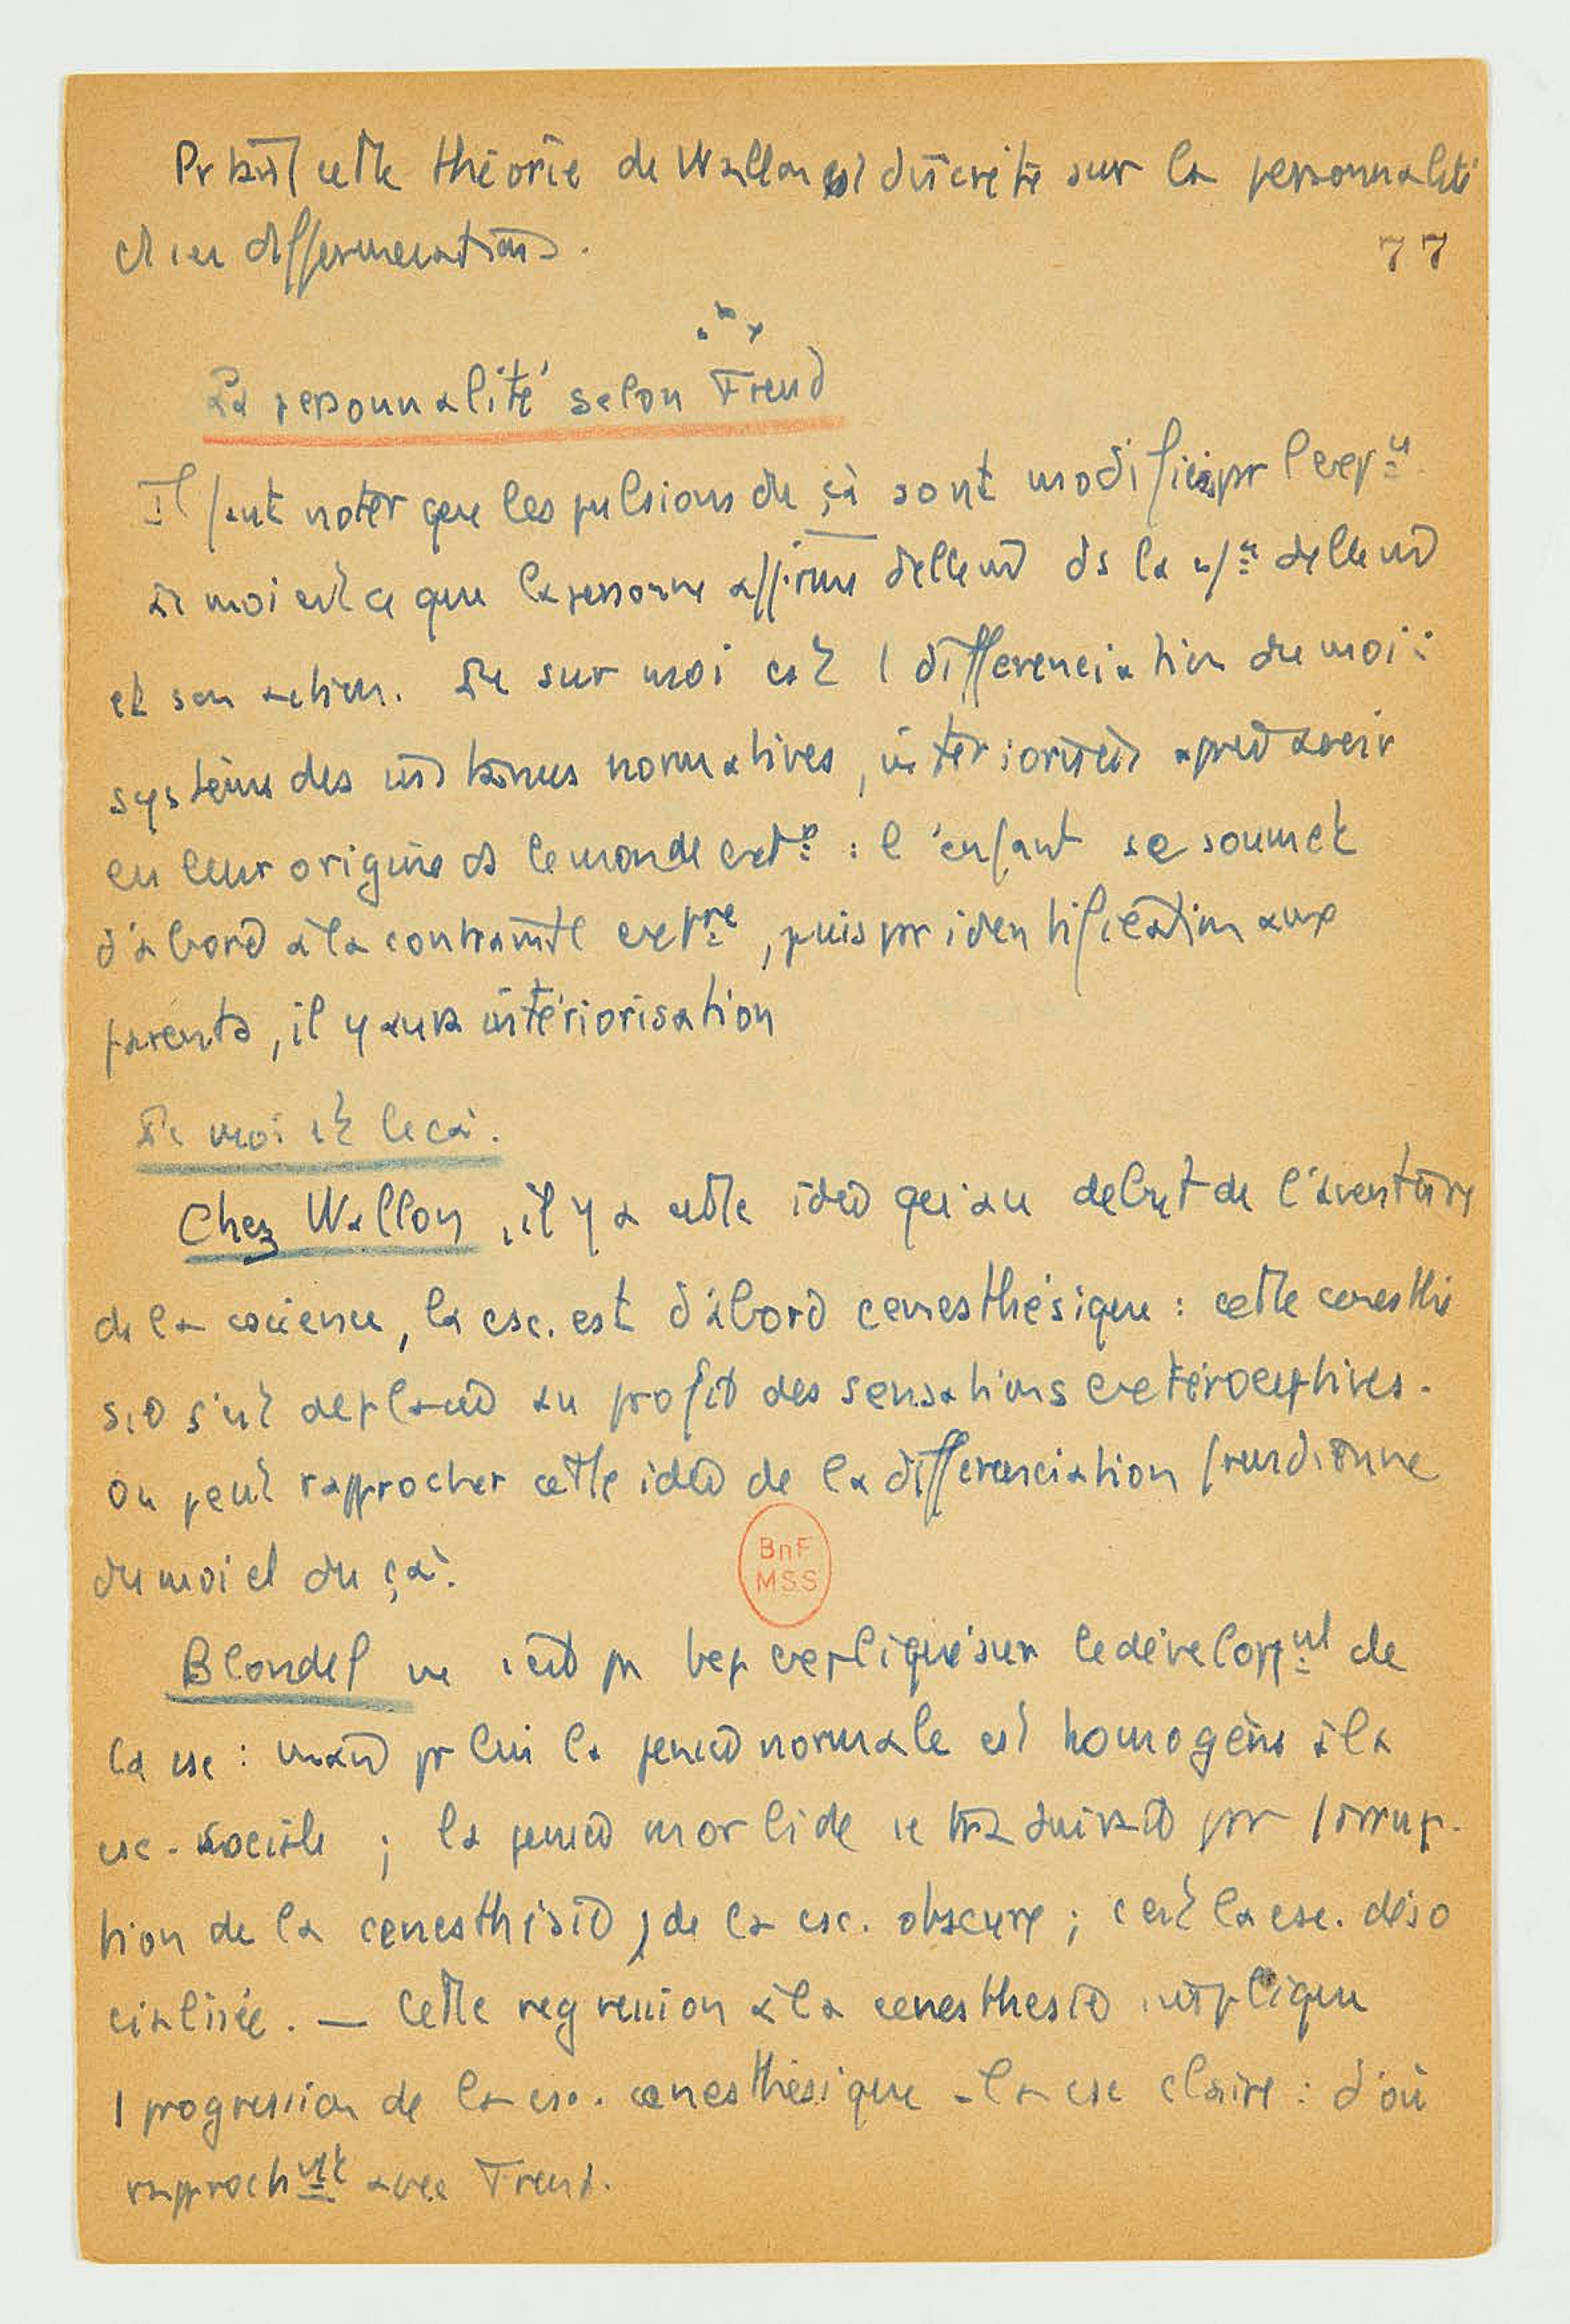 cette théorie de Wallon est discrète sur la personnalité
et ses
77
La personnalité selon Freud
Il faut noter que les pulsions du çà sont modifiées pr l'exp^ce
Le moi est ce que la personne affirme d'elle md ds la d'elle md
et son action. Le sur moi est 1 différenciation du moi :
système des normatives, intériorisées après avoir
eu leur origine ds le monde ext^r : l'enfant se soumet
d'abord à la contrainte ext^re, puis pr identification aux
parents, il y aura intériorisation
Le moi et le çà.
Chez Wallon, il y a cette idée qu'au début de l'aventure
de la cscience, la csc. est d'abord cenesthésique : cette cenesthé
sie s'est déplacée au profit des sensations extéroceptives.
On peut rapprocher cette idée de la différenciation freudienne
du moi et du çà.
BnF
MSS
Blondel ne s'est pas bcp expliqué sur le développ^mt de
la csc : mais pr lui la pensée normale est homogène à la
csc. sociale ; la pensée morbide se traduirait par l'irrup-
tion de la cenesthésie, de la csc. obscure ; c'est la csc. déso
cialisée. — Cette régression à la cenesthésie implique
1 progression de la csc. cenesthésique à la csc claire : d'où
rapproch^mt avec Freud.